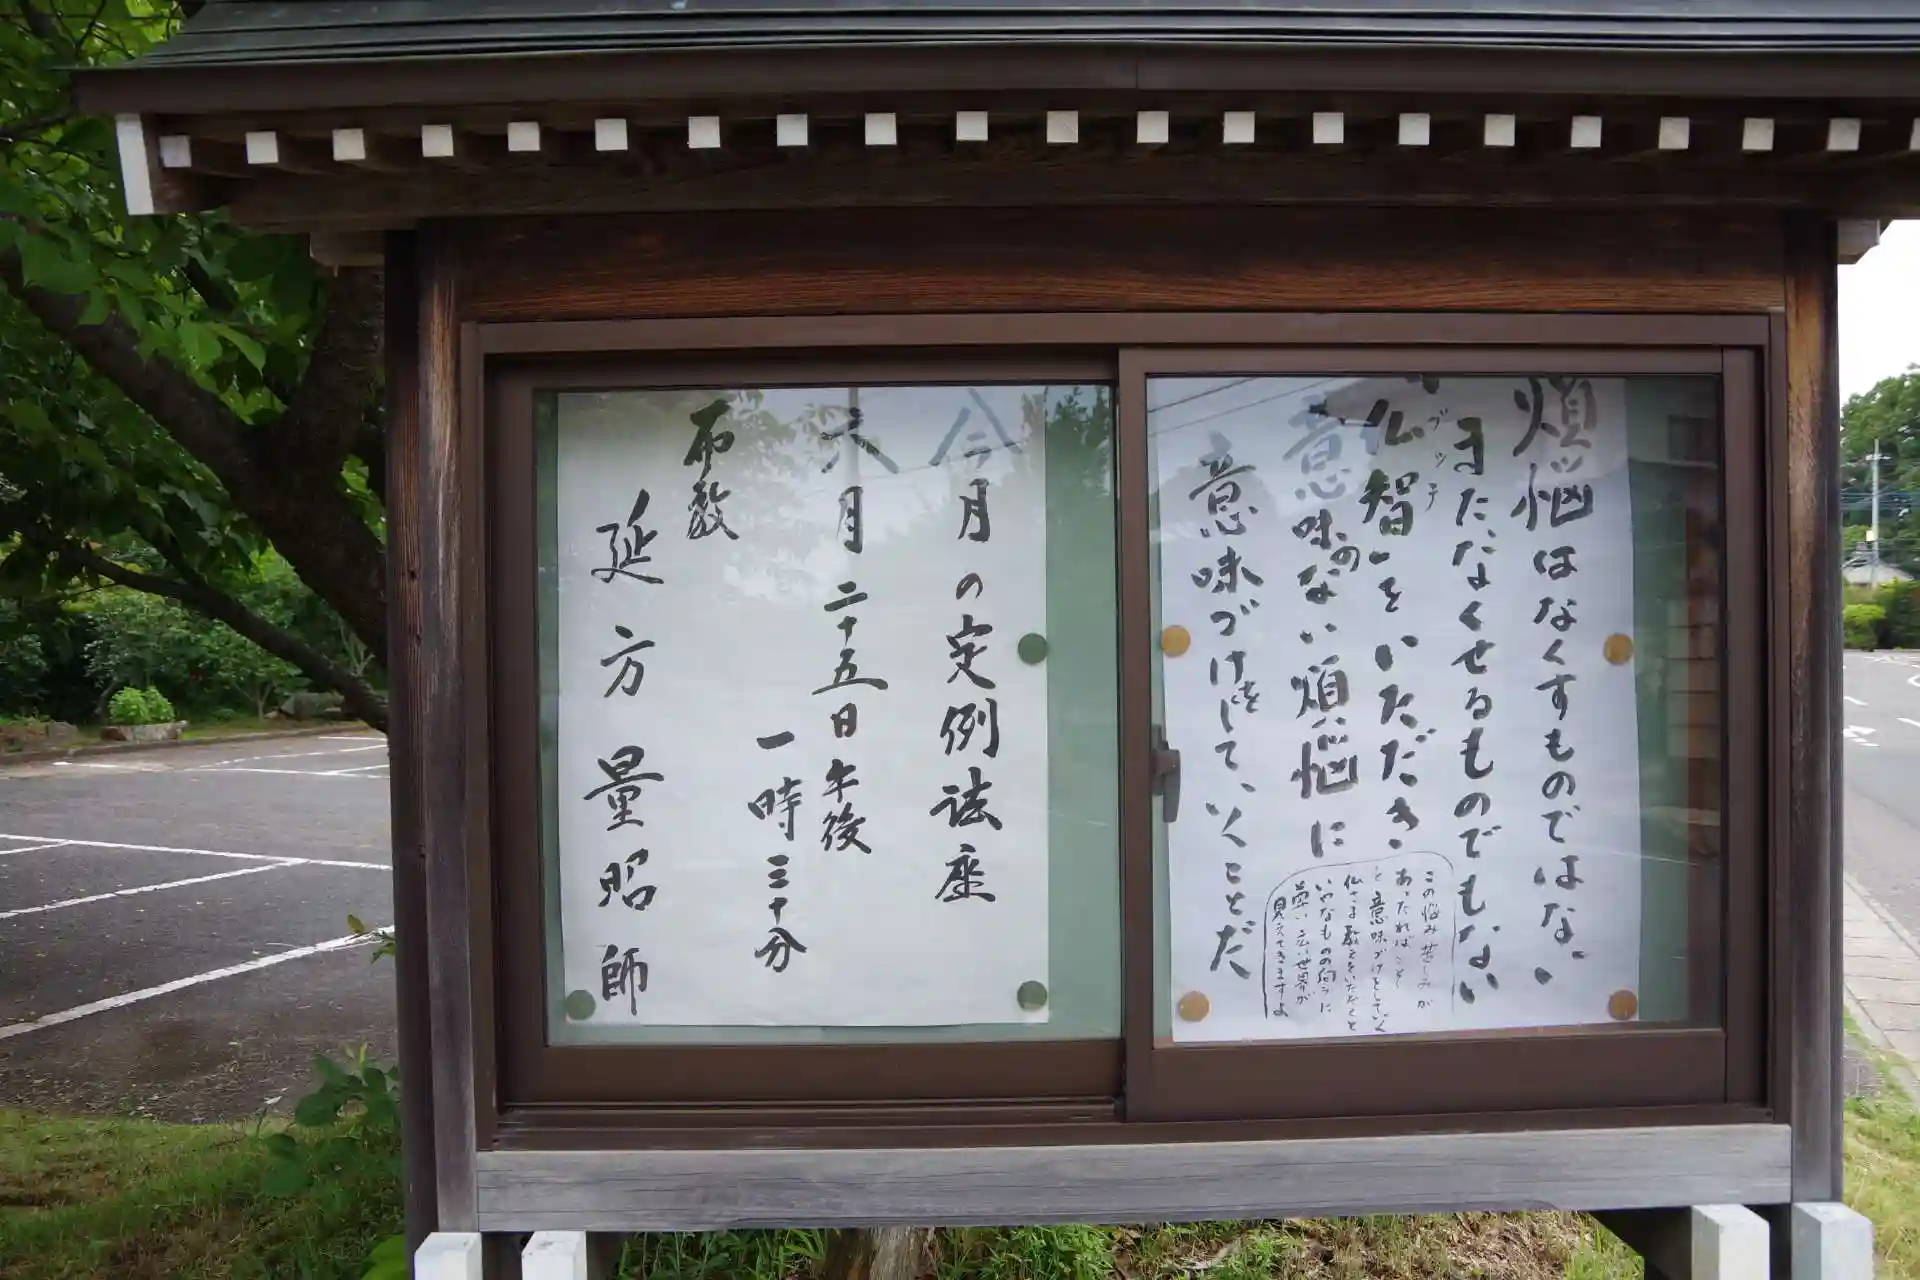 煩悩はなくすものではない
またなくせるものでもない
「仏智」をいただき
ブッチ
意味のない煩悩に
意味づけをして、いくことだ
この悩み苦しみが
あったればこそ
と意味づけをしていく
仏さま教えをいただくと
いやなものの向うに
尊い広い世界が
見えてきますよ
今月の定例法座
六月二十五日午後
一時三十分
布教
延方量昭師